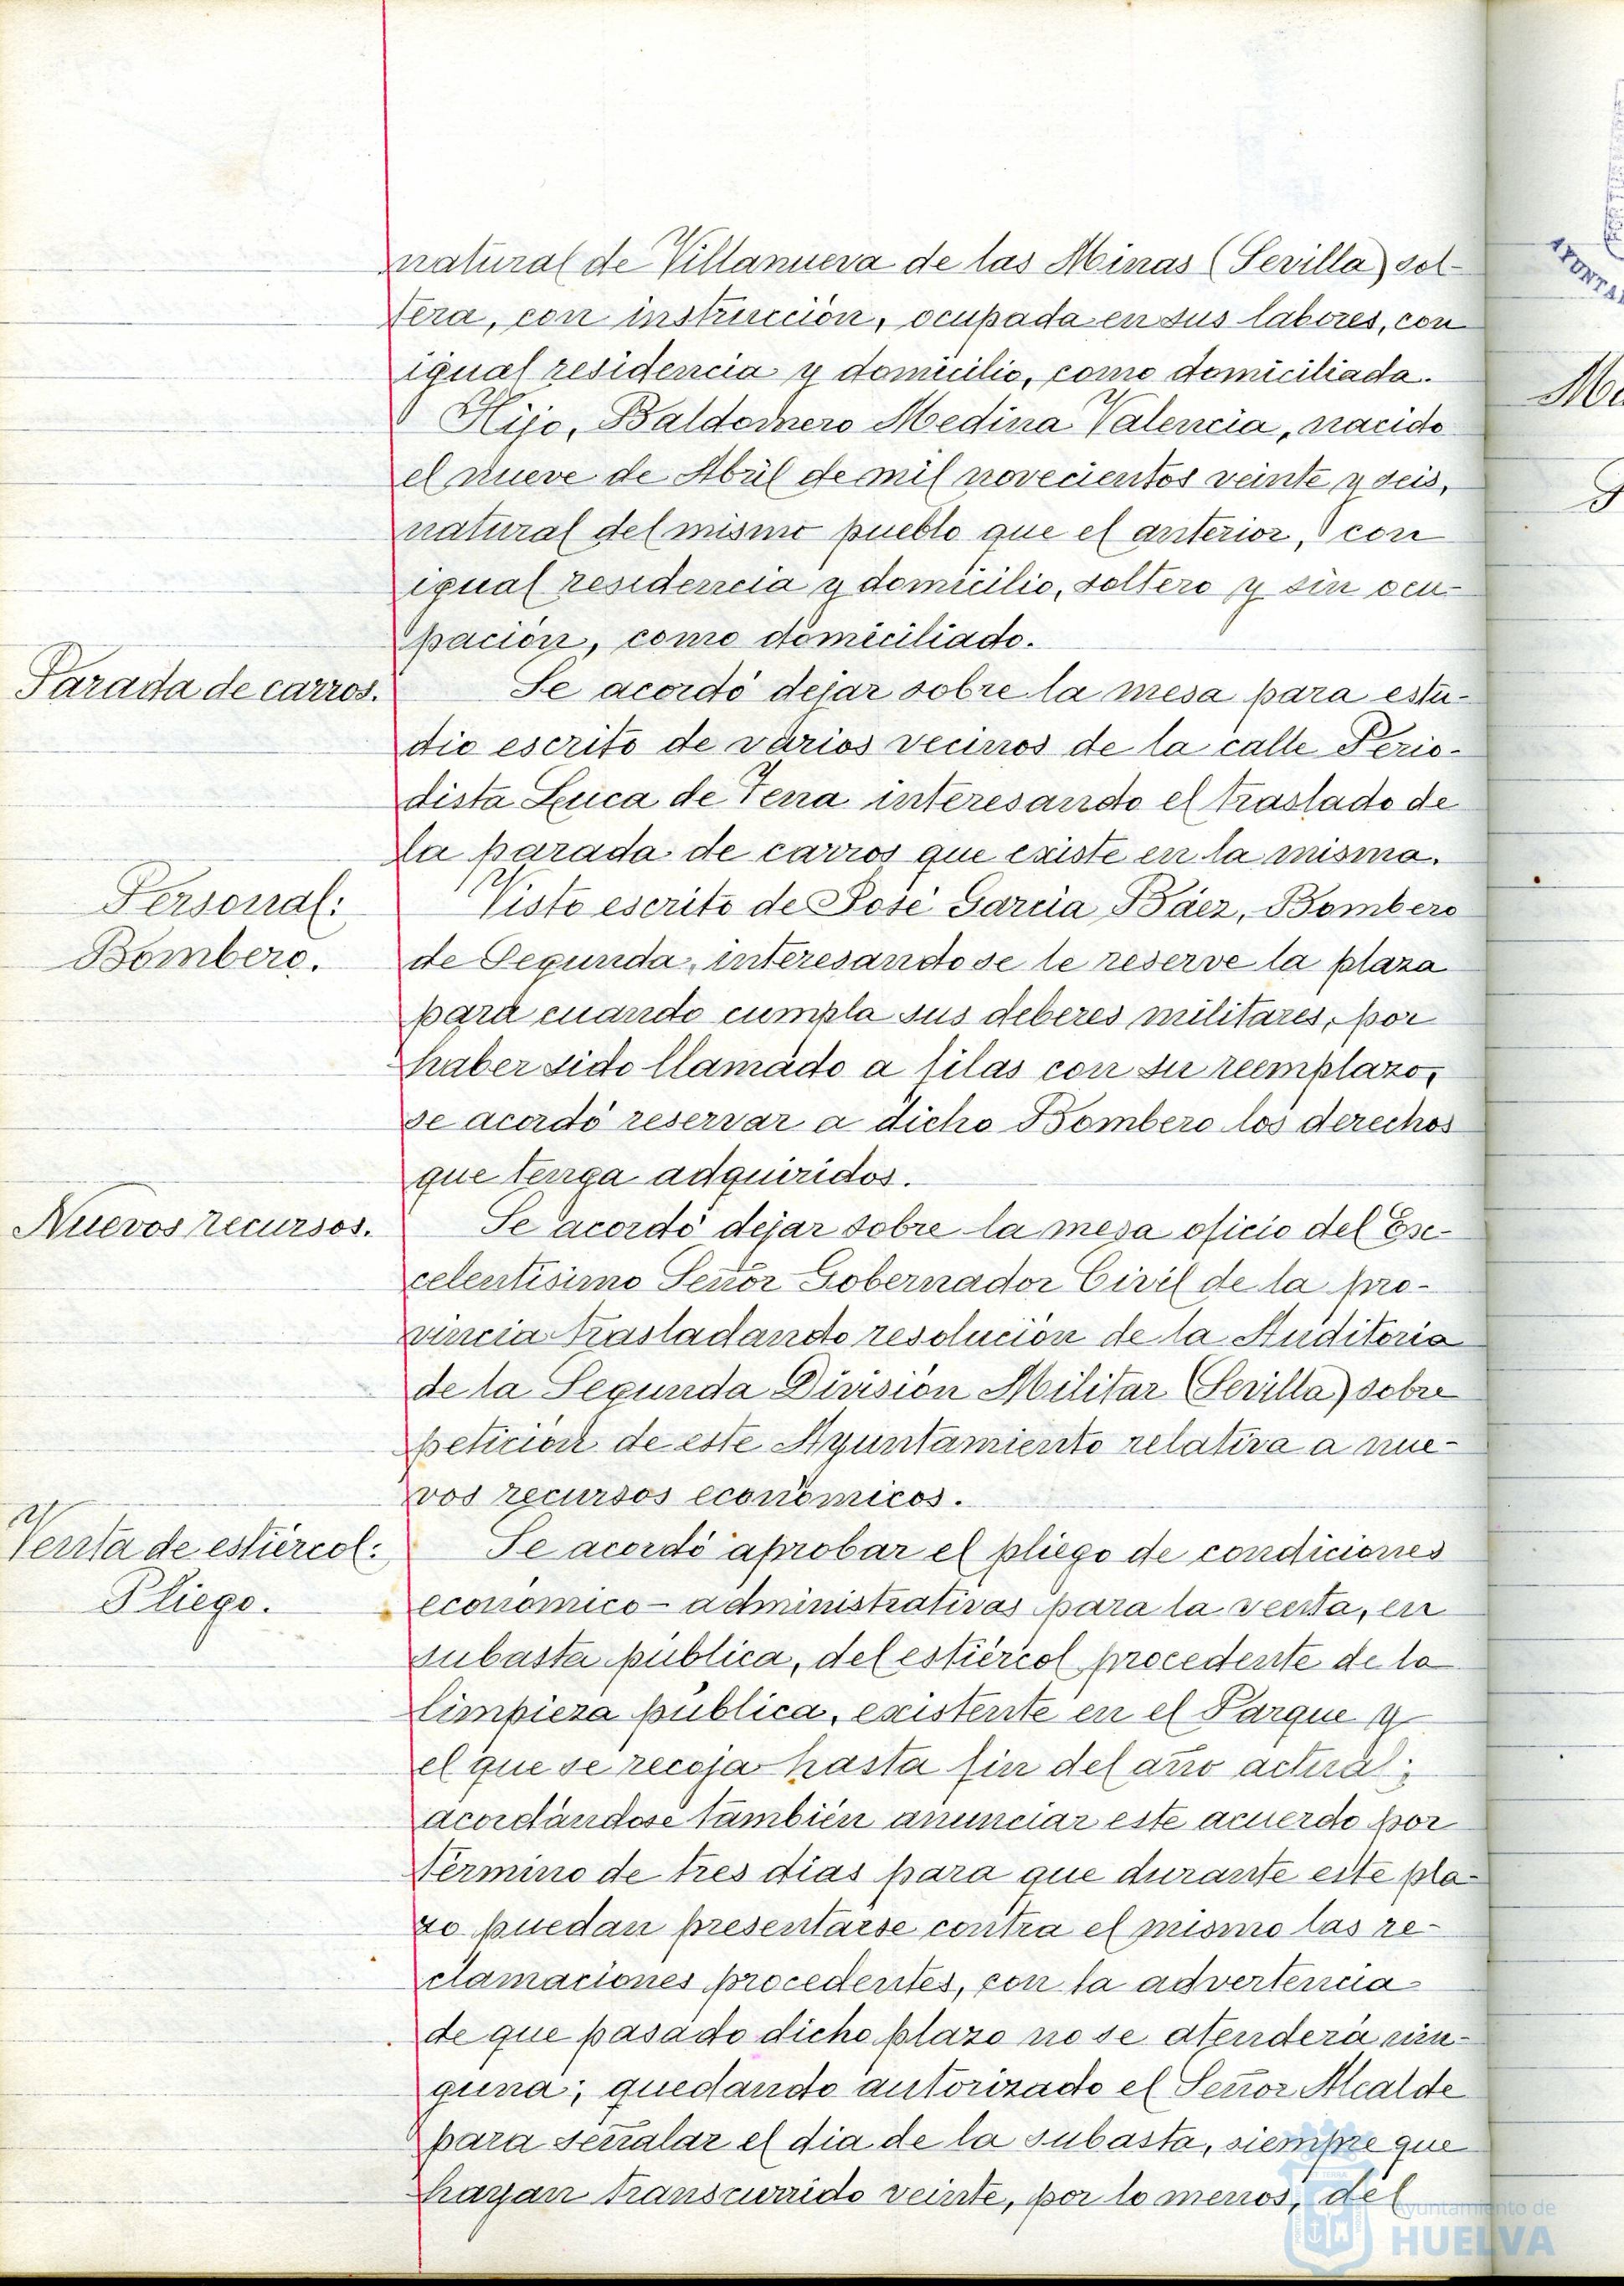 natural de Villanueva de las Minas (Sevilla) sol-
tera, con instrucción, ocupada en sus labores, con
igual residencia y domicilio, como domiciliada.
Hijo, Baldomero Medina Valencia, nacido
el nueve de Abril de mil novecientos veinte y seis,
natural del mismo pueblo que el anterior, con
igual residencia y domicilio, soltero y sin ocu-
pación, como domiciliado.
Parada de carros.
Se acordó dejar sobre la mesa para estu-
dio escrito de varios vecinos de la calle Perio-
dista Luca de Tena interesando el traslado de
la parada de carros que existe en la misma.
Personal:
Bombero.
Visto escrito de José García Báez, Bombero
de Segunda, interesando se le reserve la plaza
para cuando cumpla sus deberes militares, por
haber sido llamado a filas con su reemplazo,
se acordó reservar a dicho Bombero los derechos
que tenga adquiridos.
Nuevos recursos.
Se acordó dejar sobre la mesa oficio del Ex-
celentísimo Señor Gobernador Civil de la pro-
vincia trasladando resolución de la Auditoria
de la Segunda División Militar (Sevilla) sobre
petición de este Ayuntamiento relativa a nue-
vos recursos económicos.
Venta de estiércol:
Pliego.
Se acordó aprobar el pliego de condiciones
económico-administrativas para la venta, en
subasta pública, del estiércol procedente de la
limpieza pública, existente en el Parque y
el que se recoja hasta fin del año actual;
acordándose también anunciar este acuerdo por
término de tres dias para que durante este pla-
zo puedan presentarse contra el mismo las re-
clamaciones procedentes, con la advertencia
de que pasado dicho plazo no se atenderá nin-
guna; quedando autorizado el Señor Alcalde
para señalar el dia de la subasta, siempre que
hayan transcurrido veinte, por lo menos, del
Ayuntamiento de
HUELVA